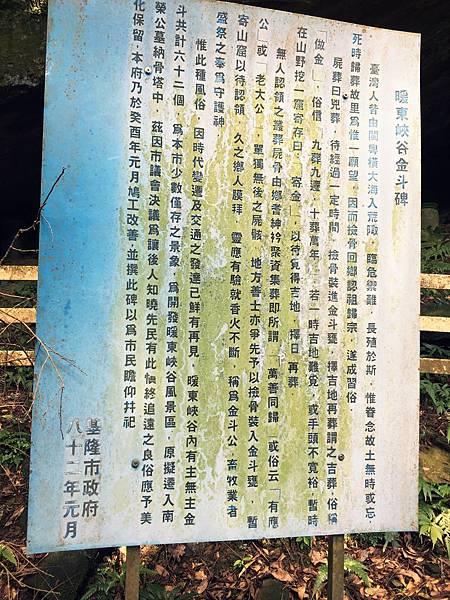 暖東峽谷金斗碑
臺灣人昔由閩粵橫大海入荒陬，臨危禦難，長殖於斯，惟眷念故土無時或忘
死時歸葬故里為惟一願望，因而撿骨回鄉認祖歸宗，遂成習俗。
屍葬曰兇葬，待經過一定時間，撿骨裝進金斗甕，擇吉地再葬謂之吉葬，俗稱
「做金」，俗信「九葬九遷，十葬萬年」，若一時吉地難覓，或手頭不寬裕，暫時
在山野挖一窟寄存曰「寄金」，以待覓得吉地，擇日再葬。
無人認領之叢葬屍骨由鄉耆紳衿聚資集葬即所謂「萬善同歸」或俗云「有應
公」或「老大公」，單獨無後之屍骸，地方善士亦爭先予以撿骨裝入金斗甕，暫
寄山窟以待認領，久之鄉人膜拜，靈應有驗就香火不斷，稱為金斗公，畜牧業者
盛祭之奉為守護神。
惟此種風俗，因時代變遷及交通之發達已鮮有再見，暖東峽谷內有主無主金
斗共計六十二個，為本市少數僅存之景象，為開發暖東峽谷風景區，原擬遷入南
榮公墓納骨塔中，茲因市議會決議為讓後人知曉先民有此慎終追遠之良俗應予美
化保留，本府乃於癸酉年元月鳩工改善，並撰此碑以為市民瞻仰并祀
基隆市政府
八十二年元月